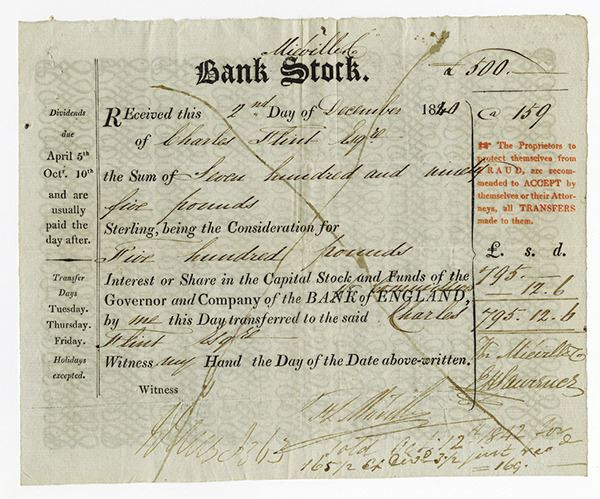 Mieville
Bank Stock.
a 500.—
Dividends
due
April 5th
Octr. 10th
and are
usually
paid the
day after.
Transfer
Days
Tuesday.
Thursday.
Friday.
Holidays
excepted.
RECeived this 2nd Day of December 1840
of Charles Flint Esqre
the Sum of Seven hundred and ninety
five pounds
Sterling, being the Consideration for
Five hundred pounds
Interest or Share in the Capital Stock and Funds of the
Governor and Company of the BANK of ENGLAND,
by me this Day transferred to the said Charles
Flint Esqre
Witness my Hand the Day of the Date above-written.
Witness
a 159
The Proprietors to
protect themselves from
FRAUD, are recom-
mended to ACCEPT by
themselves or their Attor-
neys, all TRANSFERS
made to them.
£. s. d.
795
12.6
795.12.6
Mieville
Sold 12th 1842 for
165 1/2 Ex 3 1/2 just
= 169.